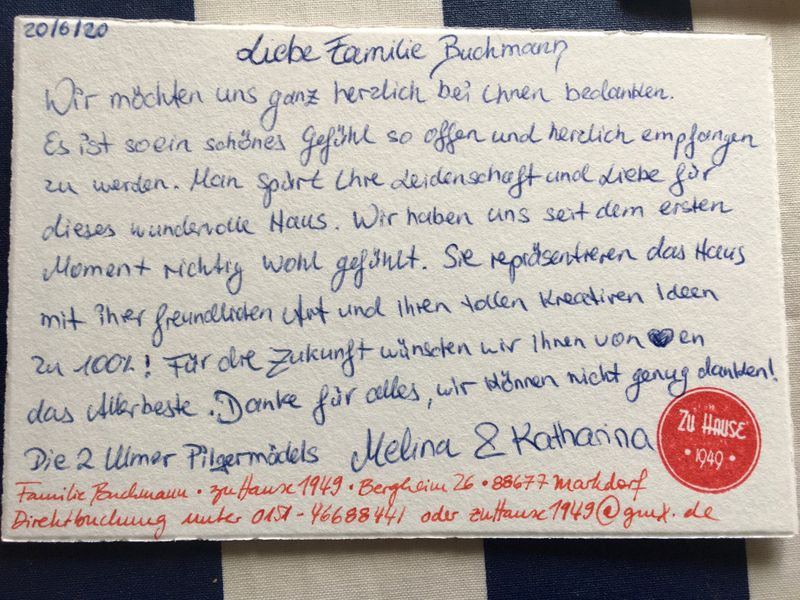 20/6/20
Liebe Familie Buchmann
Wir möchten uns ganz herzlich bei Ihnen bedanken.
Es ist so ein schönes Gefühl so offen und herzlich empfangen
zu werden. Man spürt Ihre Leidenschaft und Liebe für
dieses wundervolle Haus. Wir haben uns seit dem ersten
Moment richtig wohl gefühlt. Sie repräsentieren das Haus
mit ihrer freundlichen Art und ihren tollen kreativen Ideen
zu 100%! Für die Zukunft wünschen wir Ihnen von ♥en
das Allerbeste. Danke für alles, wir können nicht genug danken!
Die 2 Ulmer Pilgermädels Melina & Katharina
ZU HAUSE
• 1949 •
Familie Buchmann • zuHause 1949 • Bergheim 26 • 88677 Markdorf
Direktbuchung unter 0151-46688441 oder zuHause1949@gmx.de